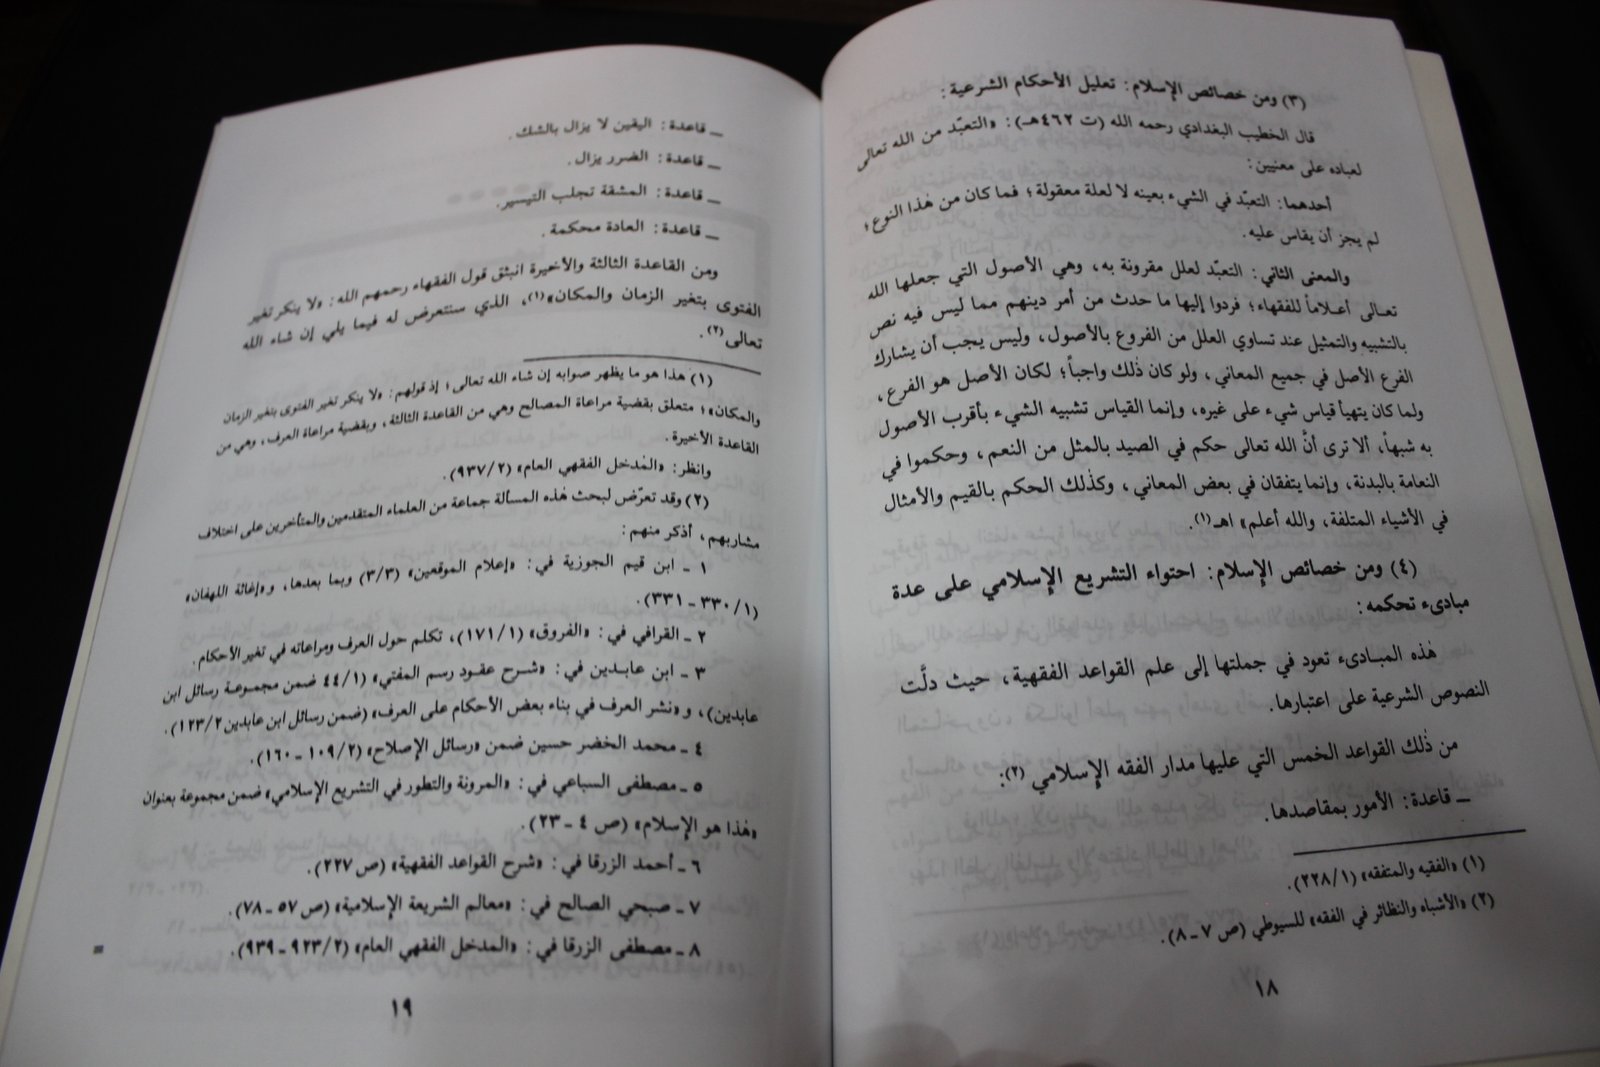 (٣) ومن خصائص الإسلام: تعليل الأحكام الشرعية:
قال الخطيب البغدادي رحمه الله (ت ٤٦٢هـ): «التعبّد من الله تعالى
لعباده على معنيين:
أحدهما: التعبّد في الشيء بعينه لا لعلة معقولة؛ فما كان من هٰذا النوع؛
لم يجز أن يقاس عليه.
والمعنى الثاني: التعبّد لعلل مقرونة به، وهي الأصول التي جعلها الله
تعالى أعلاماً للفقهاء؛ فردوا إليها ما حدث من أمر دينهم مما ليس فيه نص
بالتشبيه والتمثيل عند تساوي العلل من الفروع بالأصول، وليس يجب أن يشارك
الفرع الأصل في جميع المعاني، ولو كان ذٰلك واجباً؛ لكان الأصل هو الفرع،
ولما كان يتهيأ قياس شيء على غيره، وإنما القياس تشبيه الشيء بأقرب الأصول
به شبهاً، ألا ترى أنَّ الله تعالى حكم في الصيد بالمثل من النعم، وحكموا في
النعامة بالبدنة، وإنما يتفقان في بعض المعاني، وكذٰلك الحكم بالقيم والأمثال
في الأشياء المتلفة، والله أعلم» اهـ(١).
(٤) ومن خصائص الإسلام: احتواء التشريع الإسلامي على عدة
مبادىء تحكمه:
هٰذه المبادىء تعود في جملتها إلى علم القواعد الفقهية، حيث دلَّت
النصوص الشرعية على اعتبارها.
من ذٰلك القواعد الخمس التي عليها مدار الفقه الإسلامي (٢):
ـ قاعدة: الأمور بمقاصدها.
(١) «الفقيه والمتفقه» (٢٢٨/١).
(٢) «الأشباه والنظائر في الفقه» للسيوطي (ص ٧ ـ ٨).
١٨
ـ قاعدة: اليقين لا يزال بالشك.
ـ قاعدة: الضرر يزال.
ـ قاعدة: المشقة تجلب التيسير.
ـ قاعدة: العادة محكمة.
ومن القاعدة الثالثة والأخيرة انبثق قول الفقهاء رحمهم الله: «لا ينكر تغير
الفتوى بتغير الزمان والمكان»(١)، الذي سنتعرض له فيما يلي إن شاء الله
تعالى(٢).
(١) هٰذا هو ما يظهر صوابه إن شاء الله تعالى؛ إذ قولهم: «لا ينكر تغير الفتوى بتغير الزمان
والمكان»؛ متعلق بقضية مراعاة المصالح وهي من القاعدة الثالثة، وبقضية مراعاة العرف، وهي من
القاعدة الأخيرة.
وانظر: «المدخل الفقهي العام» (٩٣٧/٢).
(٢) وقد تعرّض لبحث هٰذه المسألة جماعة من العلماء المتقدمين والمتأخرين على اختلاف
مشاربهم، أذكر منهم:
١ ـ ابن قيم الجوزية في: «إعلام الموقعين» (٣/٣) وبما بعدها، و«إغاثة اللهفان»
(٣٣٠/١ ـ ٣٣١).
٢ ـ القرافي في: «الفروق» (١٧١/١)، تكلم حول العرف ومراعاته في تغير الأحكام.
٣ ـ ابن عابدين في: «شرح عقود رسم المفتي» (٤٤/١ ضمن مجموعة رسائل ابن
عابدين)، و«نشر العرف في بناء بعض الأحكام على العرف» (ضمن رسائل ابن عابدين ١٢٣/٢).
٤ ـ محمد الخضر حسين ضمن «رسائل الإصلاح» (١٠٩/٢ ـ ١٦٠).
٥ ـ مصطفى السباعي في: «المرونة والتطور في التشريع الإسلامي» ضمن مجموعة بعنوان
«هٰذا هو الإسلام» (ص ٤ ـ ٢٣).
٦ ـ أحمد الزرقا في: «شرح القواعد الفقهية» (ص ٢٢٧).
٧ ـ صبحي الصالح في: «معالم الشريعة الإسلامية» (ص ٥٧ ـ ٧٨).
٨ ـ مصطفى الزرقا في: «المدخل الفقهي العام» (٩٢٣/٢ ـ ٩٣٩). =
١٩